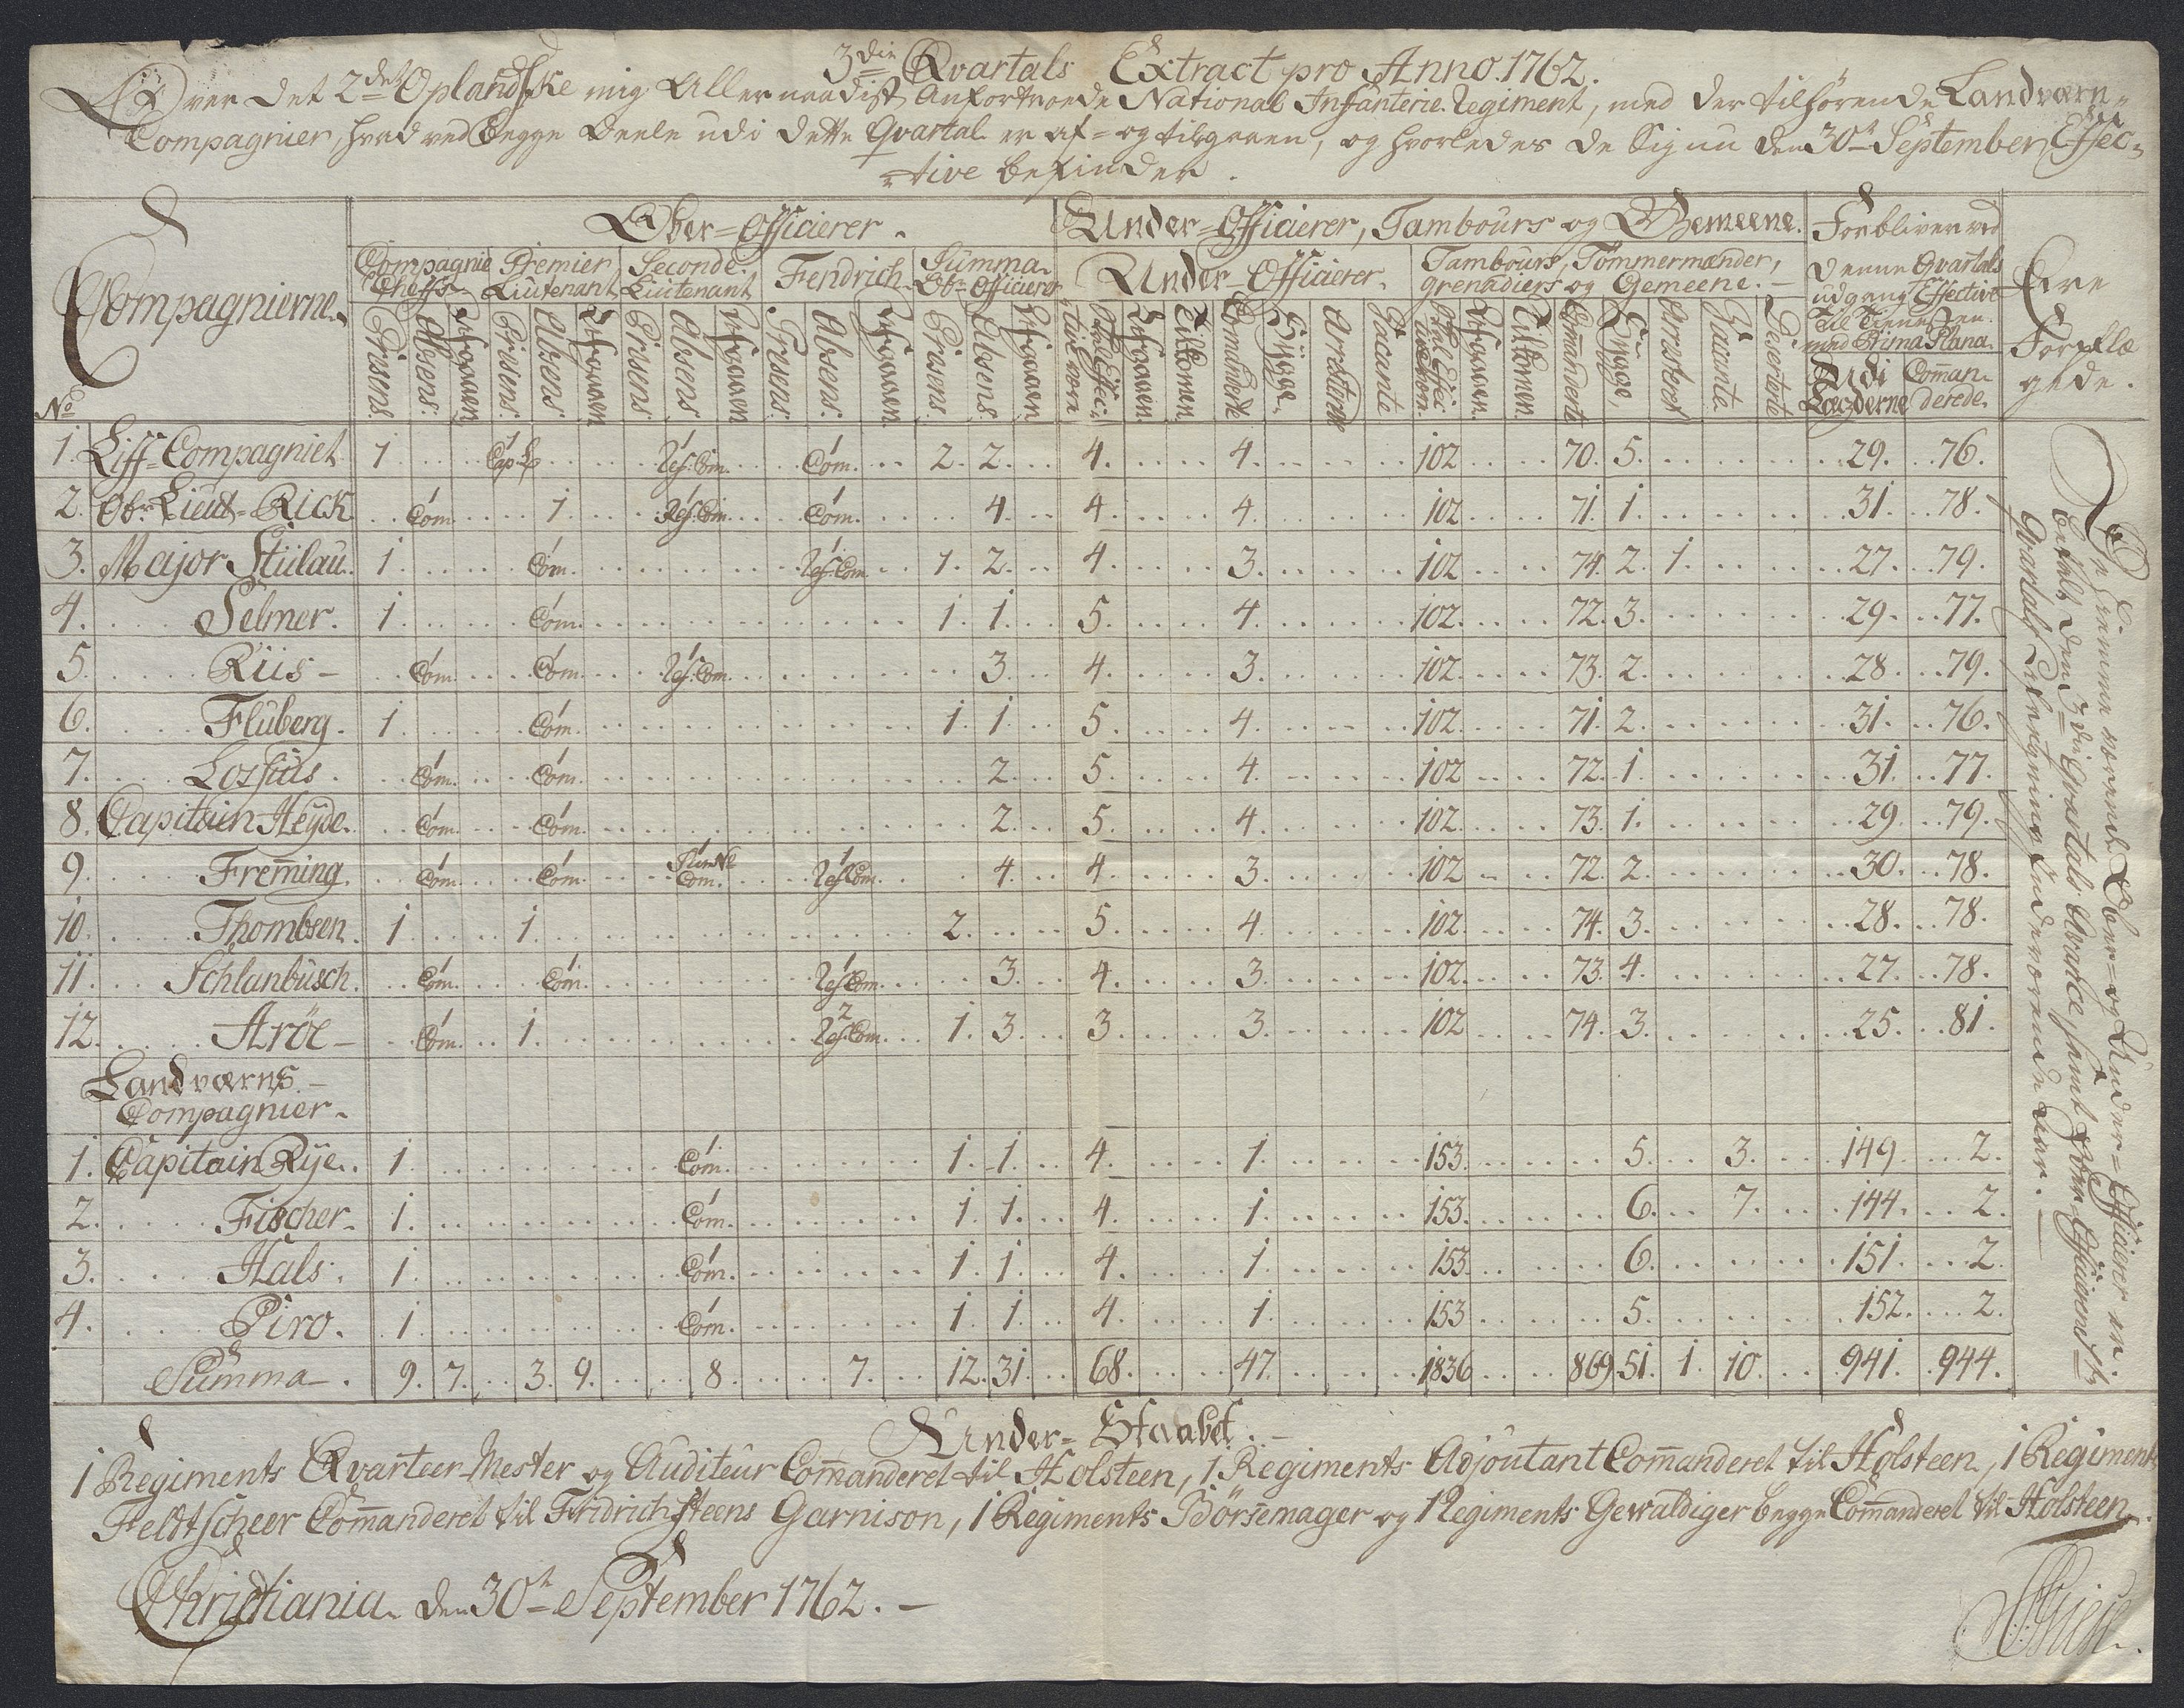 3die Qvartals Extract pro Anno. 1762.
Over det 2det Oplandske mig Allernaadigst Anfortroede National Infanterie Regiment, med der tilhörende Landværn=
Compagnier, hvad ved begge Deele udi dette Qvartal er af= og tilgaaen, og hvorledes de Sig nu den 30te September Effec=
=tive befinder.
Compagnierne
No
Ober=Officierer.
Under=Officierer, Tambours og Gemeene.
Forbliver ved denne Qvartals udgang Effective til Tienesten med Prima Plana.
Ere Forplægede.
Compagnie Cheffs
Premier Lieutenant
Seconde Lieutenant
Fendrich
Summa Ob: Officierer
Under=Officierer.
Tambours, Tömmermænder, grenadiers og Gemeene.
Præsens. Absens. Afgaaen Præsens. Absens. Afgaaen Præsens. Absens. Afgaaen Præsens. Absens. Afgaaen. Præsens. Absens. Afgaaen
Afgaaen. Tilkomen. Comanderte Syyge. Arresterede Vacante
Afgaaen. Tilkomen. Comanderte Syyge, Arresteret Vacante Deserterte
Udi Lægderne
Comanderede.
1. Liff=Compagniet 1 1 Cap: 1 Res: Com. 1 Com. 2. 2. 4. 4. 102 70. 5. 29. 76.
2. Obr: Lieut= Rick 1 Com. 1. 1 Res: Com. 1 Com. 4. 4. 4. 102 71. 1. 31. 78.
3. Major Stülau. 1. 1 Com. 1 Res: Com 1. 2. 4. 3. 102 74. 2. 1. 27. 79.
4. Selmer. 1. 1 Com. 1. 1. 5. 4. 102. 72. 3. 29. 77.
5. Riis - 1 Com. 1 Com. 1 Res: Com. 3. 4. 3. 102. 73. 2. 28. 79.
6. Fluberg. 1. 1 Com. 1. 1. 5. 4. 102. 71. 2. 31. 76.
7. Lossius. 1 Com. 1 Com. 2. 5. 4. 102 72. 1. 31. 77.
8. Capitain Heyde. 1 Com. 1 Com. 2. 5. 4. 102. 73. 1. 29. 79.
9. Freming. 1 Com. 1 Com. 1 Com. 1 Res: Com. 4. 4. 3. 102 72. 2. 30. 78.
10. Thombsen. 1. 1. 2. 5. 4. 102. 74. 3. 28. 78.
11. Schlanbusch. 1 Com. 1 Com. 1 Res: Com. 3. 4. 3. 102. 73. 4. 27. 78.
12. Aröe - 1 Com. 1. 2 Res: Com. 1. 3. 3. 3. 102 74. 3. 25. 81.
Landværns -
Compagnier -
1. Capitain Rye. 1. 1 Com. 1. 1. 4. 1. 153. 5. 3. 149. 2.
2. Fischer. 1. 1 Com. 1. 1. 4. 1. 153. 6. 7. 144. 2.
3. Hals. 1. 1 Com. 1. 1. 4. 1. 153. 6. 151. 2.
4. Piro. 1. 1 Com. 1. 1. 4. 1. 153 5. 152. 2.
Summa - . 9. 7. 3. 9. 8. 7. 12. 31. 68. 47. 1836 869. 51. 1. 10. 941. 944.
De hiemme værende Ober= og Under=Officierer er
betalt den 3die Qvartals
Under=Staabet. -
1 Regiments Qvarteer-Mester og Auditeur Comanderet til Holsteen, 1 Regiments Adjoutant Comanderet til Holsteen, 1 Regiments
Feldtscheer Comanderet til Fridrichsteens Garnison, 1 Regiments Börsemager og 1 Regiments Gewaldiger begge Comanderet til Holsteen.
Christiania den 30te September 1762. -